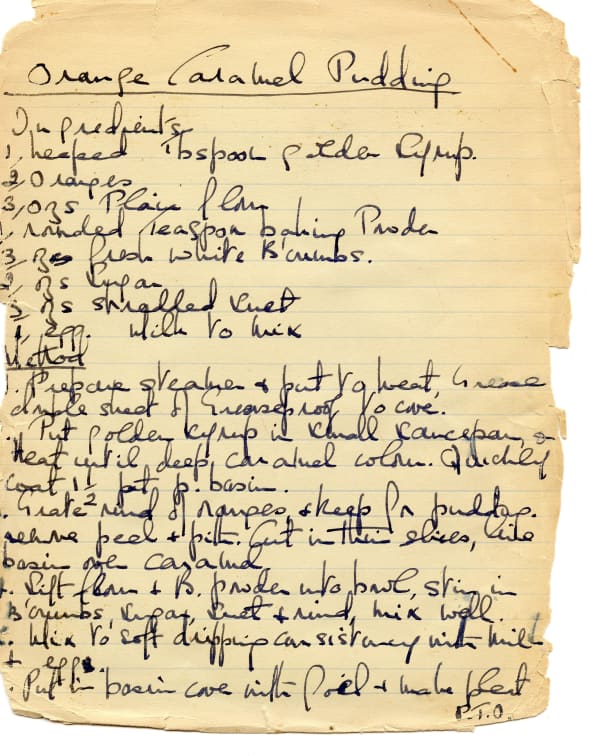 Orange Caramel Pudding
Ingredients
1, heaped Tbspoon golden Syrup.
2, Oranges
3, ozs Plain flour
1, rounded Teaspoon baking Powder
3, ozs fresh white B'crumbs.
2, ozs Sugar
3 ozs shredded Suet
1, egg. Milk to mix
Method
1. Prepare steamer + put to heat, Grease
double sheet of Greaseproof to cover.
. Put golden Syrup in small saucepan, &
heat until deep caramel colour. Quickly
coat 1½ pt p. basin.
. Grate rind of oranges, + keep for pudding.
remove peel + pith. Cut in thin slices, line
basin over caramel.
4. Sift flour + B. powder into bowl, stir in
B'crumbs, Sugar, Suet + rind, mix well.
. Mix to soft dripping consistancy with milk
+ eggs.
. Put in basin cover with foil + make pleat
P.T.O.